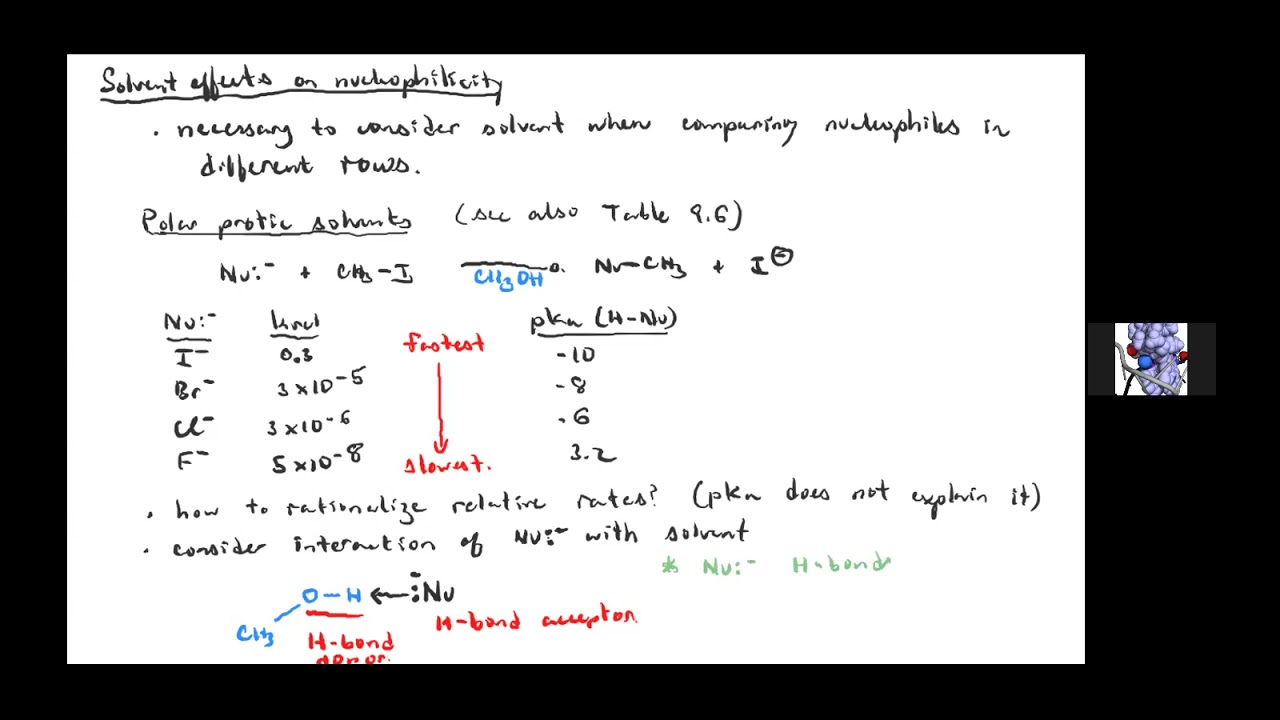 Solvent effects on nucleophilicity
• necessary to consider solvent when comparing nucleophiles in
different rows.
Polar protic solvents (see also Table 9.6)
Nu:⁻ + CH₃-I CH₃OH Nu-CH₃ + I⊖
Nu:⁻ krel pka (H-Nu)
I⁻ 0.3 fastest -10
Br⁻ 3×10⁻⁵ -8
Cl⁻ 3×10⁻⁶ -6
F⁻ 5×10⁻⁸ slowest. 3.2
• how to rationalize relative rates? (pka does not explain it)
• consider interaction of Nu:⁻ with solvent
* Nu:⁻ H-bond
O-H ← :Nu
CH₃ H-bond acceptor
H-bond
donor.